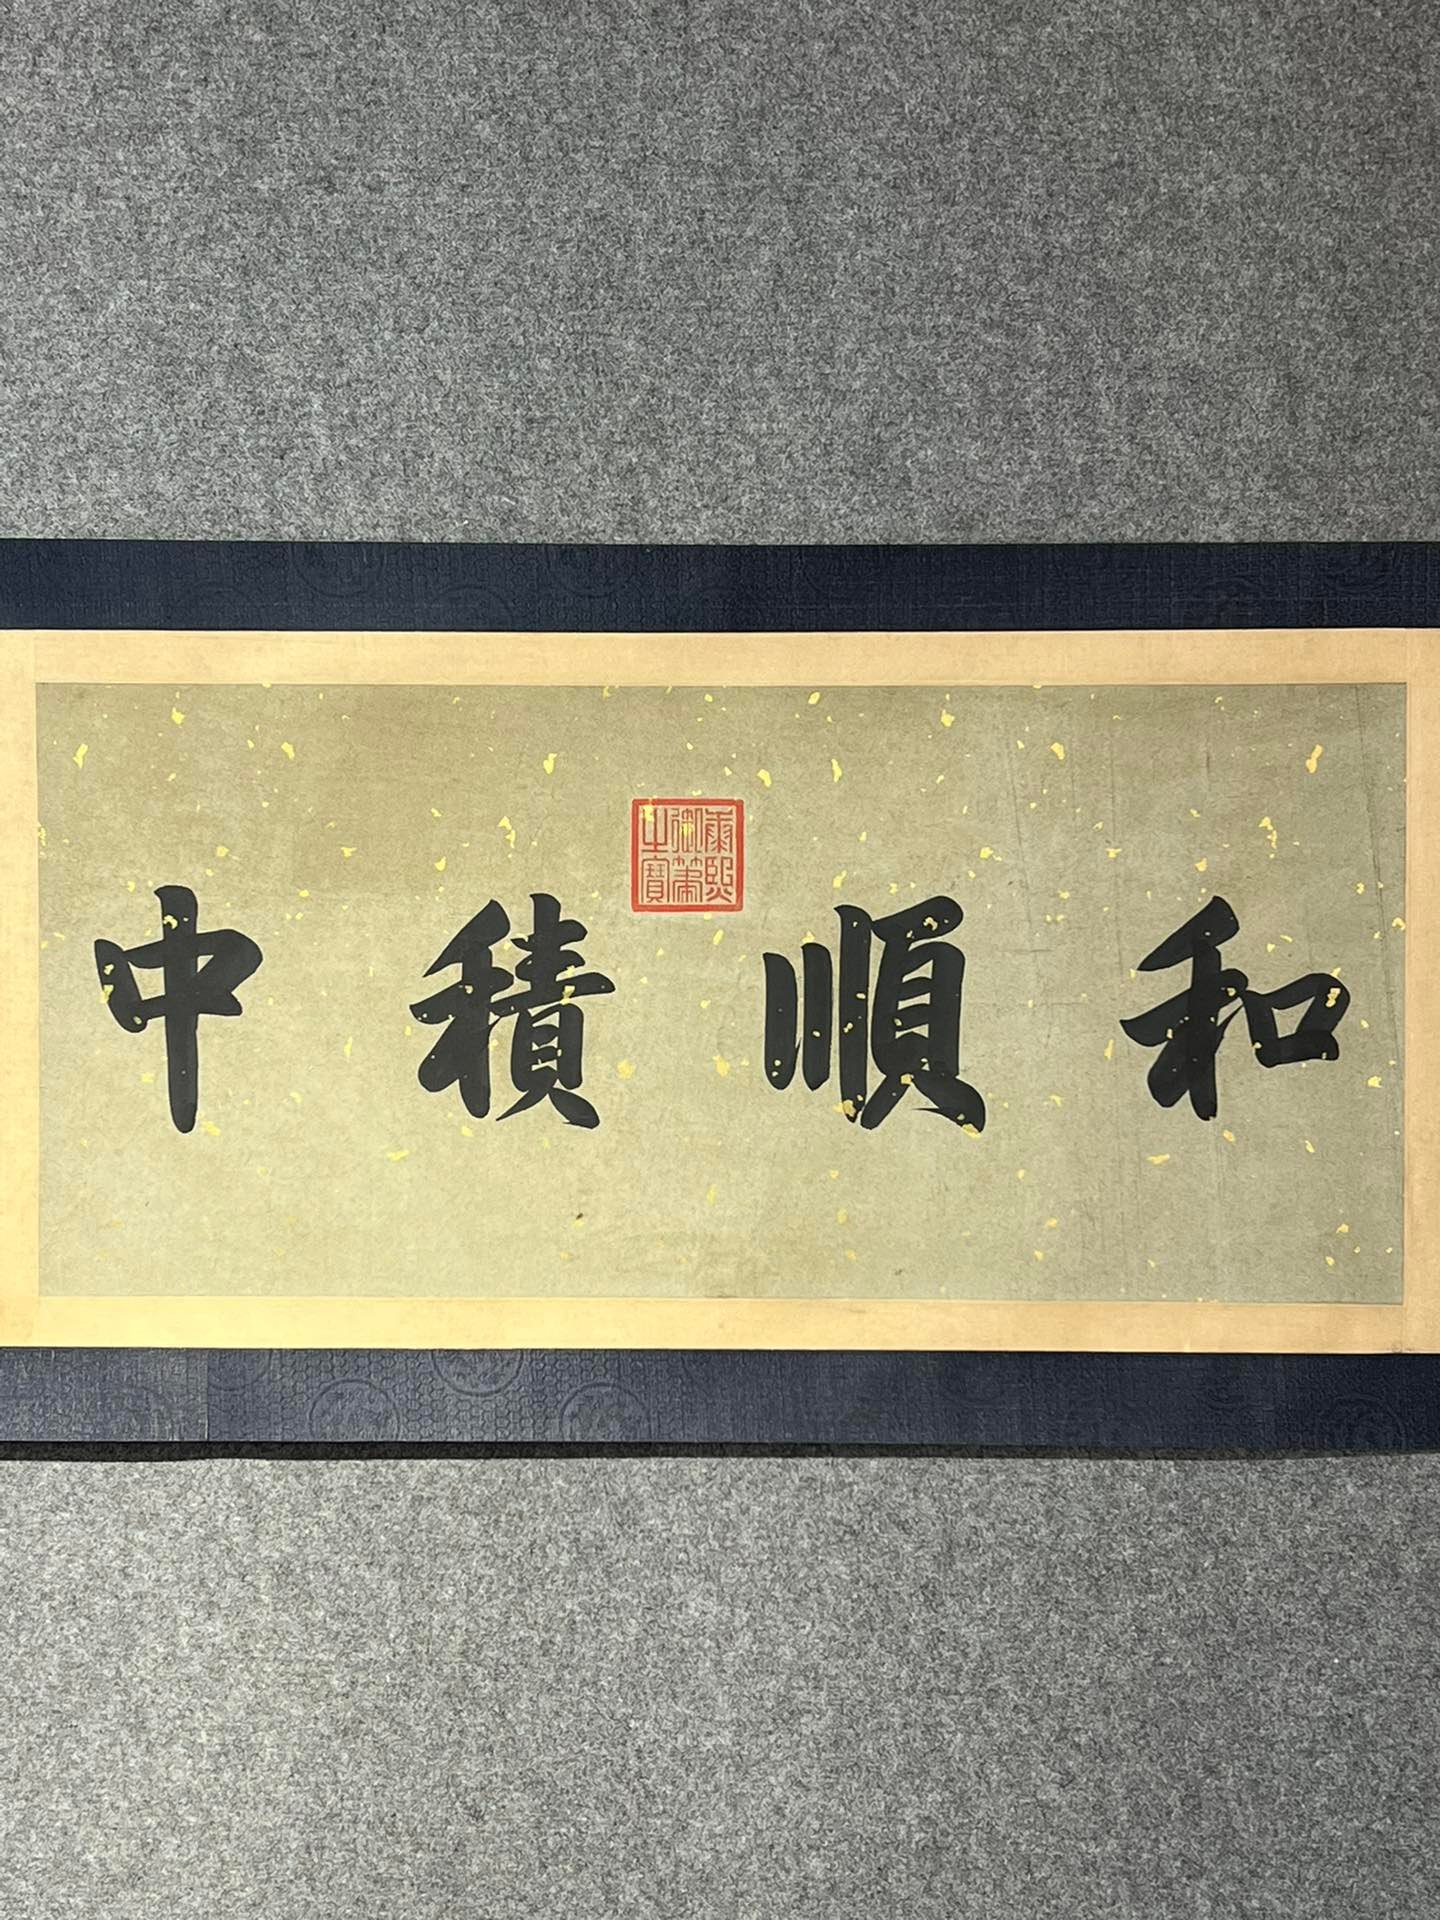 和順積中
康熙御筆之寶